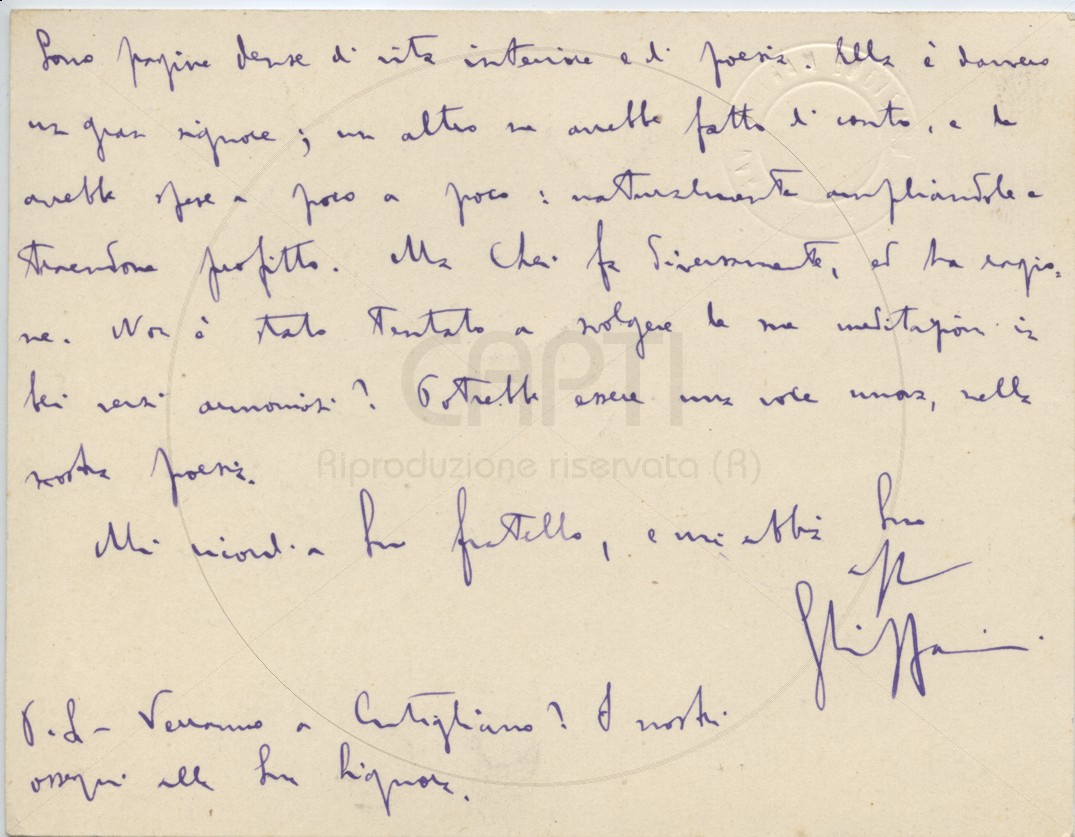 Sono pagine dense di vita interiore e di poesia. Ella è davvero
un gran signore; un altro ne avrebbe fatto di conto, e le
avrebbe spese a poco a poco: naturalmente ampliandole e
traendone profitto. Ma Lei fa diversamente, ed ha ragio-
ne. Non è stato tentato a svolgere le sue meditazioni in
bei versi armoniosi? Potrebbe essere una voce nuova, nella
nostra poesia.
Mi ricordi a Suo fratello, e mi abbia Suo
aff
P.S - Verranno a Cutigliano? I nostri
ossequi alla Sua Signora.
CAPTI
Riproduzione riservata (R)